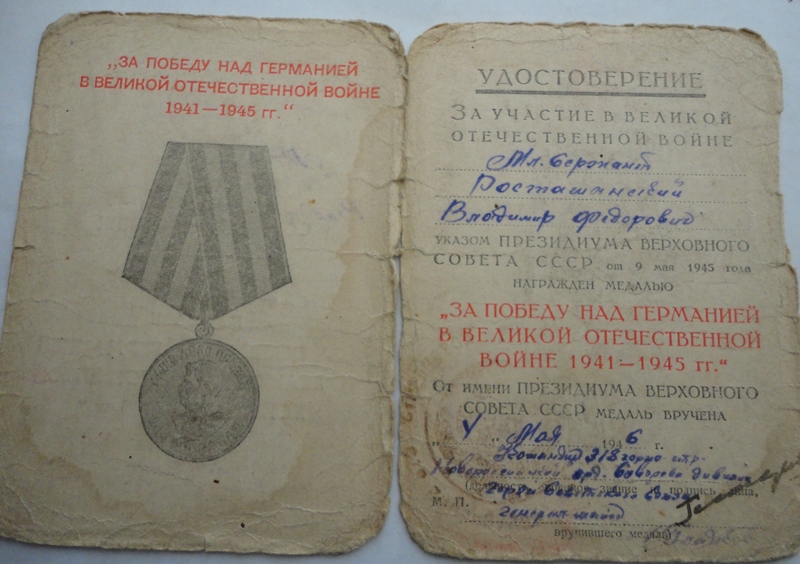 „ЗА ПОБЕДУ НАД ГЕРМАНИЕЙ
В ВЕЛИКОЙ ОТЕЧЕСТВЕННОЙ ВОЙНЕ
1941—1945 гг.“
УДОСТОВЕРЕНИЕ
ЗА УЧАСТИЕ В ВЕЛИКОЙ
ОТЕЧЕСТВЕННОЙ ВОЙНЕ
Мл. Сержант
Росташанский
Владимир Федорович
УКАЗОМ ПРЕЗИДИУМА ВЕРХОВНОГО
СОВЕТА СССР от 9 мая 1945 года
НАГРАЖДЕН МЕДАЛЬЮ
„ЗА ПОБЕДУ НАД ГЕРМАНИЕЙ
В ВЕЛИКОЙ ОТЕЧЕСТВЕННОЙ
ВОЙНЕ 1941—1945 гг.“
ОТ ИМЕНИ ПРЕЗИДИУМА ВЕРХОВНОГО
СОВЕТА СССР МЕДАЛЬ ВРУЧЕНА
Мая 1946 г.
Командир 318 горно стр.
Новороссийской орд. Суворова дивизии
Герой Советского Союза
М. П. генерал майор
вручившего медаль)